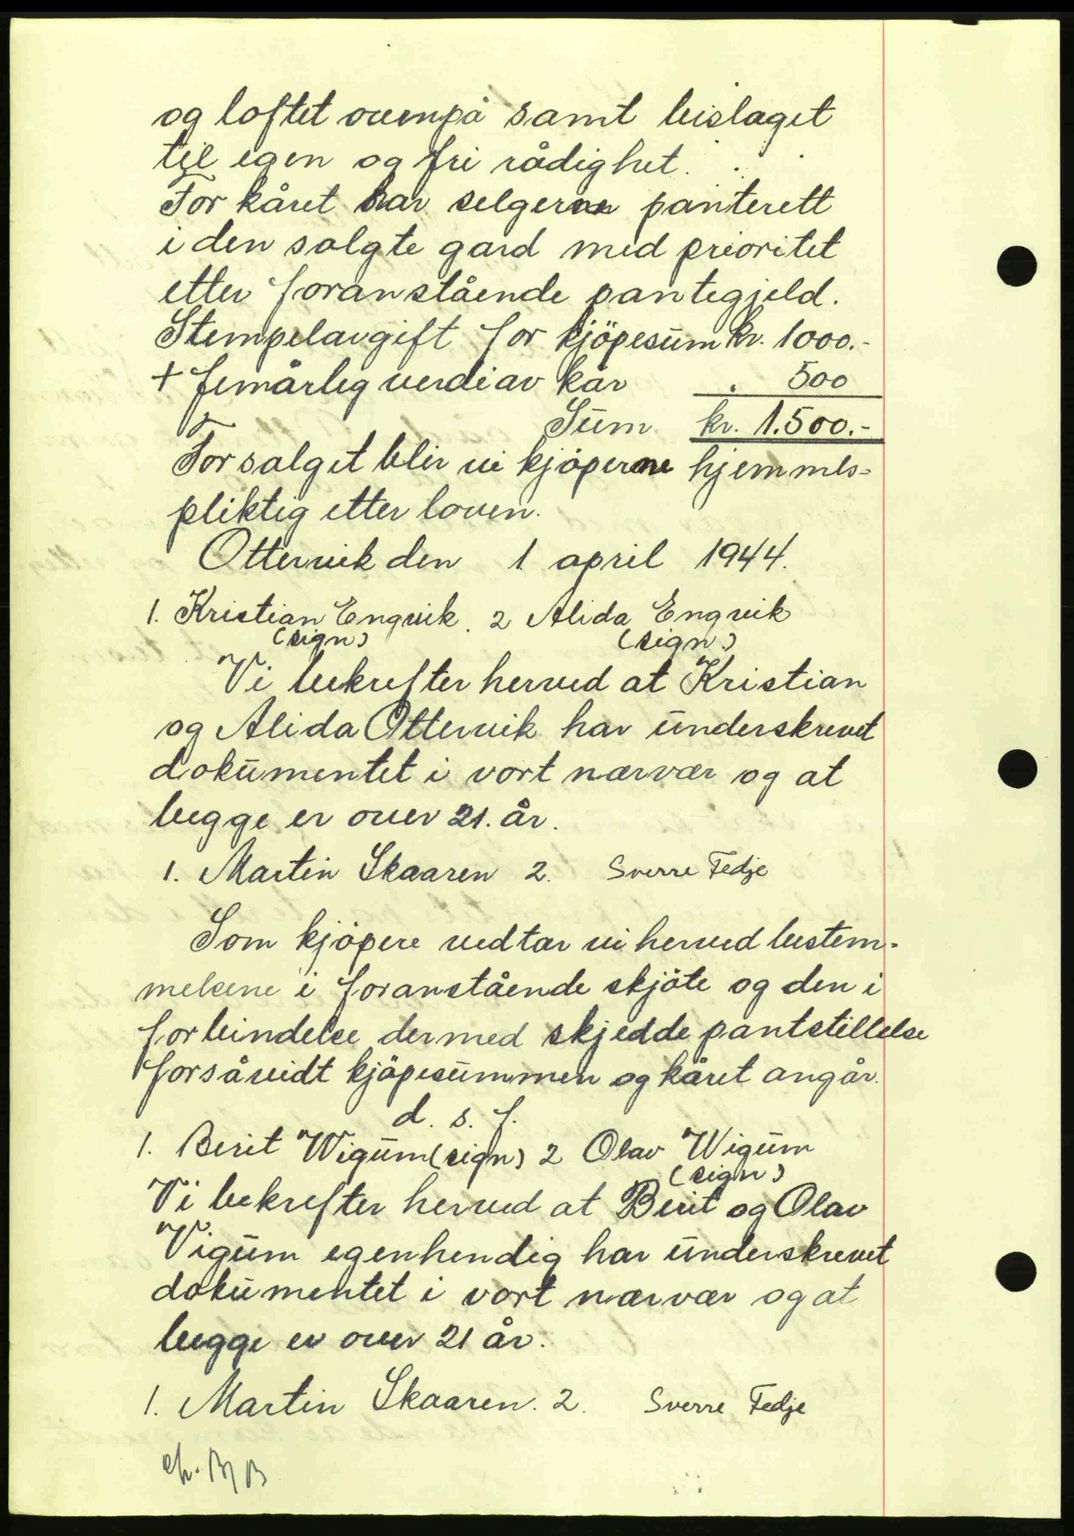 og loftet ovenpå samt bislaget
til egen og fri rådighet.
For kåret har selgerne panterett
i den solgte gard med prioritet
etter foranstående pantegjeld.
Stempelavgift for kjöpesum kr. 1000.-
+ femårleg verdi av kår " 500
Sum kr. 1.500.-
For salget blir vi kjöperne hjemmels-
pliktig etter loven.
Ottervik den 1 april 1944.
1. Kristian Engvik. 2 Alida Engvik
(sign) (sign)
Vi bekrefter herved at Kristian
og Alida Ottervik har underskrevet
dokumentet i vort nærvær og at
begge er over 21. år.
1. Martin Skaaren 2. Sverre Fedje
Som kjöpere vedtar vi herved bestem-
melsene i foranstående skjöte og den i
forbindelse dermed skjedde pantstillelse
forsåvidt kjöpesummen og kåret angår.
d. s. f.
1. Berit Wigum (sign) 2 Olav Wigum
(sign)
Vi bekrefter herved at Berit og Olav
Vigum egenhendig har underskrevet
dokumentet i vort nærvær og at
begge er over 21 år.
1. Martin Skaaren. 2. Sverre Fedje